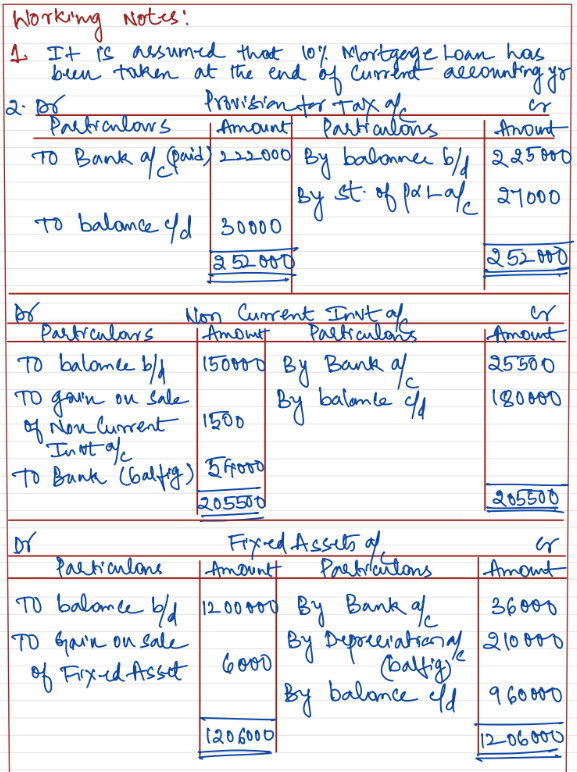 Working Notes:
1. It is assumed that 10% Mortgage Loan has
been taken at the end of current accounting yr
2. Dr Provision for Tax a/c Cr
Particulars Amount Particulars Amount
To Bank a/c (paid) 222000 By balance b/d 225000
By st. of P&L a/c 27000
To balance c/d 30000
252000 252000
Dr Non Current Invt a/c Cr
Particulars Amount Particulars Amount
To balance b/d 150000 By Bank a/c 25500
To gain on sale By balance c/d 180000
of Non Current 1500
Invt a/c
To Bank (balfig) 54000
205500 205500
Dr Fixed Assets a/c Cr
Particulars Amount Particulars Amount
To balance b/d 1200000 By Bank a/c 36000
To Gain on sale By Depreciation a/c 210000
of Fixed Asset 6000 (balfig)
By balance c/d 960000
1206000 1206000